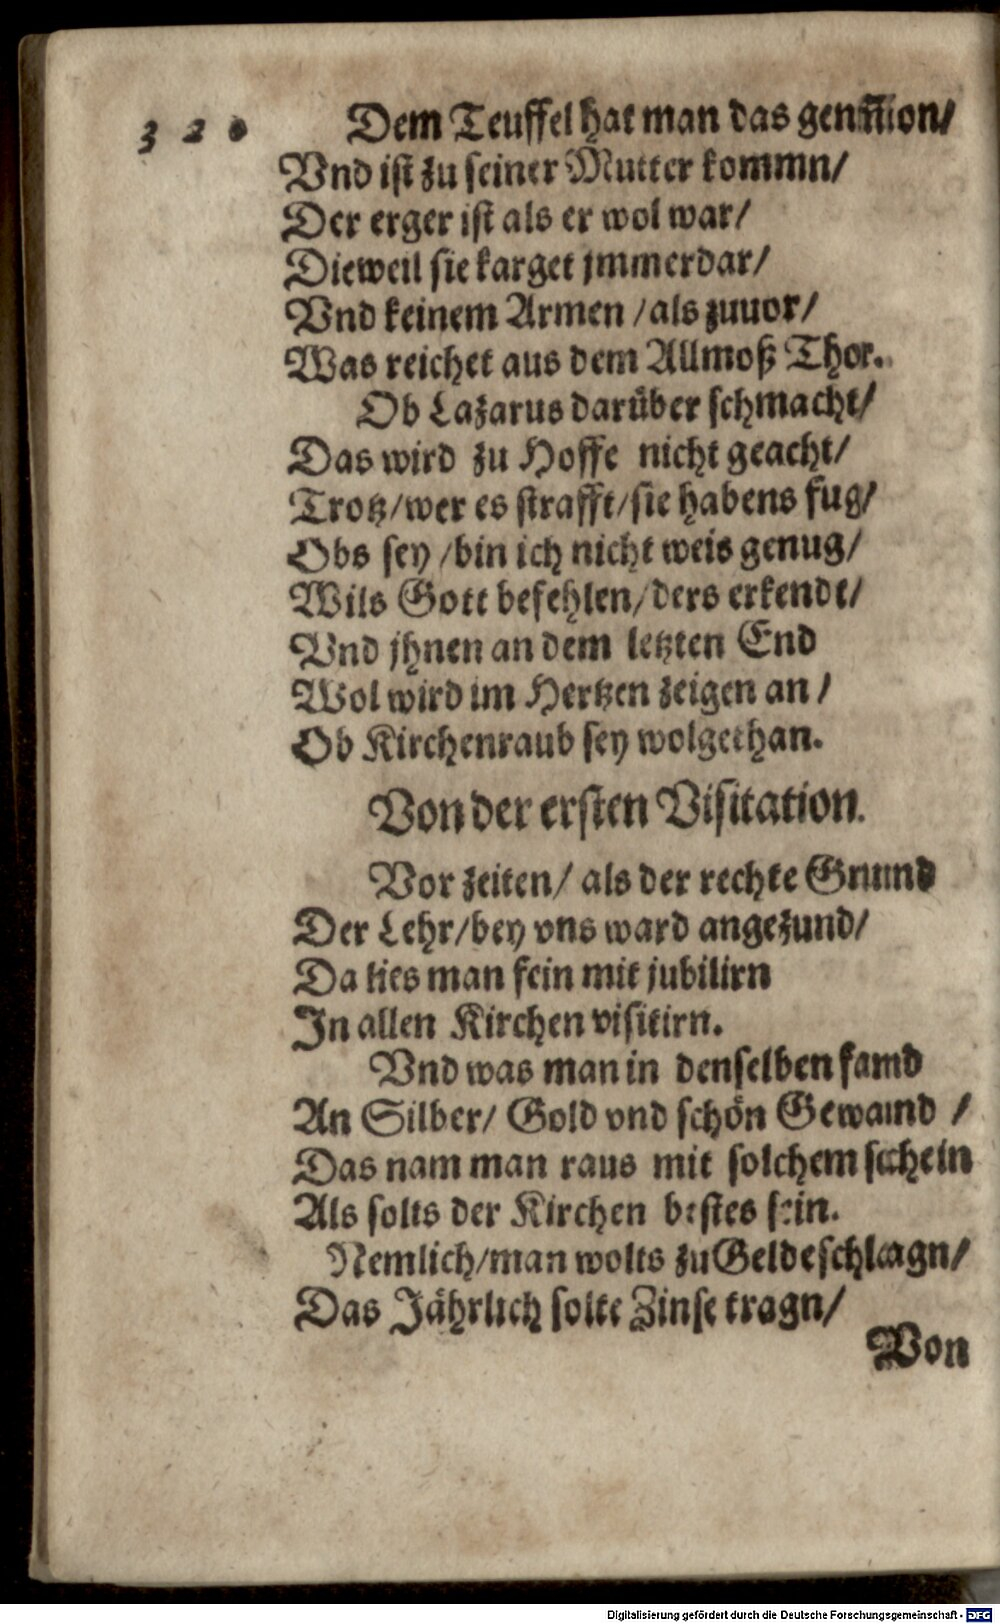 3 2 0
Dem Teuffel hat man das genm̃ion/
Vnd ist zu seiner Mutter kommn/
Der erger ist als er wol war/
Dieweil sie karget jmmerdar/
Vnd keinem Armen / als zuuor/
Was reichet aus dem Allmoß Thor.
Ob Lazarus darüber schmacht/
Das wird zu Hoffe nicht geacht/
Trotz/wer es strafft/sie habens fug/
Obs sey /bin ich nicht weis genug/
Wils Gott befehlen/ders erkendt/
Vnd jhnen an dem letzten End
Wol wird im Hertzen zeigen an /
Ob Kirchenraub sey wolgethan.
Von der ersten Visitation.
Vor zeiten/ als der rechte Grund
Der Lehr/bey vns ward angezund/
Da lies man fein mit jubilirn
In allen Kirchen visitirn.
Vnd was man in denselben fand
An Silber/ Gold vnd schön Gewand /
Das nam man raus mit solchem schein
Als solts der Kirchen bestes sein.
Nemlich/man wolts zu Gelde schlagn/
Das Jährlich solte Zinse tragn/
Von
Digitalisierung gefördert durch die Deutsche Forschungsgemeinschaft - DFG